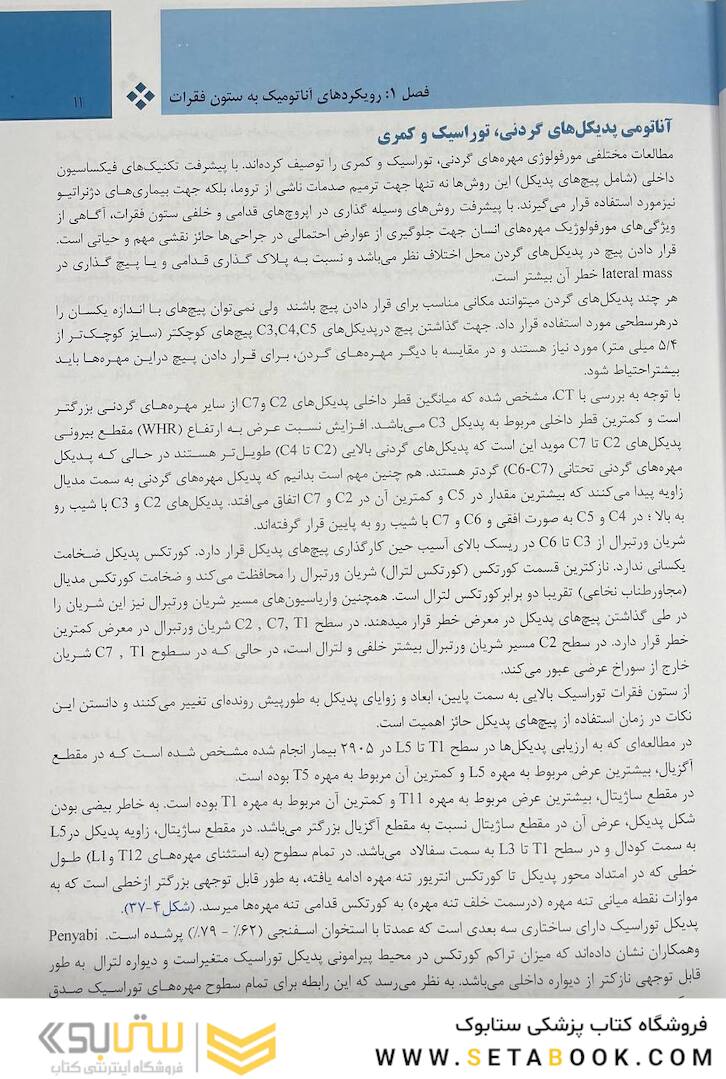 فصل ۱: رویکردهای آناتومیک به ستون فقرات
۱۱
آناتومی پدیکل‌های گردنی، توراسیک و کمری
مطالعات مختلفی مورفولوژی مهره‌های گردنی، توراسیک و کمری را توصیف کرده‌اند. با پیشرفت تکنیک‌های فیکساسیون
داخلی (شامل پیچ‌های پدیکل) این روش‌ها نه تنها جهت ترمیم صدمات ناشی از تروما، بلکه جهت بیماری‌های دژنراتیو
نیزمورد استفاده قرار می‌گیرند. با پیشرفت روش‌های وسیله گذاری در اپروچ‌های قدامی و خلفی ستون فقرات، آگاهی از
ویژگی‌های مورفولوژیک مهره‌های انسان جهت جلوگیری از عوارض احتمالی در جراحی‌ها حائز نقشی مهم و حیاتی است.
قرار دادن پیچ در پدیکل‌های گردن محل اختلاف نظر می‌باشد و نسبت به پلاک گذاری قدامی و یا پیچ گذاری در
lateral mass خطر آن بیشتر است.
هر چند پدیکل‌های گردن میتوانند مکانی مناسب برای قرار دادن پیچ باشند ولی نمی‌توان پیچ‌های با اندازه یکسان را
درهرسطحی مورد استفاده قرار داد. جهت گذاشتن پیچ درپدیکل‌های C3,C4,C5 پیچ‌های کوچکتر (سایز کوچک‌تر از
۵/۴ میلی متر) مورد نیاز هستند و در مقایسه با دیگر مهره‌های گردن، برای قرار دادن پیچ دراین مهره‌ها باید
بیشتراحتیاط شود.
با توجه به بررسی با CT، مشخص شده که میانگین قطر داخلی پدیکل‌های C2 وC7 از سایر مهره‌های گردنی بزرگتر
است و کمترین قطر داخلی مربوط به پدیکل C3 می‌باشد. افزایش نسبت عرض به ارتفاع (WHR) مقطع بیرونی
پدیکل‌های C2 تا C7 موید این است که پدیکل‌های گردنی بالایی (C2 تا C4) طویل‌تر هستند در حالی که پدیکل
مهره‌های گردنی تحتانی (C6-C7) گردتر هستند. هم چنین مهم است بدانیم که پدیکل مهره‌های گردنی به سمت مدیال
زاویه پیدا می‌کنند که بیشترین مقدار در C5 و کمترین آن در C2 و C7 اتفاق می‌افتد. پدیکل‌های C2 و C3 با شیب رو
به بالا ؛ در C4 و C5 به صورت افقی و C6 و C7 با شیب رو به پایین قرار گرفته‌اند.
شریان ورتبرال از C3 تا C6 در ریسک بالای آسیب حین کارگذاری پیچ‌های پدیکل قرار دارد. کورتکس پدیکل ضخامت
یکسانی ندارد. نازکترین قسمت کورتکس (کورتکس لترال) شریان ورتبرال را محافظت می‌کند و ضخامت کورتکس مدیال
(مجاورطناب نخاعی) تقریبا دو برابرکورتکس لترال است. همچنین واریاسیون‌های مسیر شریان ورتبرال نیز این شریان را
در طی گذاشتن پیچ‌های پدیکل در معرض خطر قرار میدهند. در سطح C2 , C7, T1 شریان ورتبرال در معرض کمترین
خطر قرار دارد. در سطح C2 مسیر شریان ورتبرال بیشتر خلفی و لترال است، در حالی که در سطوح C7 , T1 شریان
خارج از سوراخ عرضی عبور می‌کند.
از ستون فقرات توراسیک بالایی به سمت پایین، ابعاد و زوایای پدیکل به طورپیش رونده‌ای تغییر می‌کنند و دانستن این
نکات در زمان استفاده از پیچ‌های پدیکل حائز اهمیت است.
در مطالعه‌ای که به ارزیابی پدیکل‌ها در سطح T1 تا L5 در ۲۹۰۵ بیمار انجام شده مشخص شده است که در مقطع
آگزیال، بیشترین عرض مربوط به مهره L5 و کمترین آن مربوط به مهره T5 بوده است.
در مقطع ساژیتال، بیشترین عرض مربوط به مهره T11 و کمترین آن مربوط به مهره T1 بوده است. به خاطر بیضی بودن
شکل پدیکل، عرض آن در مقطع ساژیتال نسبت به مقطع آگزیال بزرگتر می‌باشد. در مقطع ساژیتال، زاویه پدیکل درL5
به سمت کودال و در سطح T1 تا L3 به سمت سفالاد می‌باشد. در تمام سطوح (به استثنای مهره‌های T12 وL1) طول
خطی که در امتداد محور پدیکل تا کورتکس انتریور تنه مهره ادامه یافته، به طور قابل توجهی بزرگتر ازخطی است که به
موازات نقطه میانی تنه مهره (درسمت خلف تنه مهره) به کورتکس قدامی تنه مهره‌ها میرسد. (شکل۴-۳۷).
پدیکل توراسیک دارای ساختاری سه بعدی است که عمدتا با استخوان اسفنجی (۶۲٪ - ۷۹٪) پرشده است. Penyabi
وهمکاران نشان داده‌اند که میزان تراکم کورتکس در محیط پیرامونی پدیکل توراسیک متغیراست و دیواره لترال به طور
قابل توجهی نازکتر از دیواره داخلی می‌باشد. به نظر می‌رسد که این رابطه برای تمام سطوح مهره‌های توراسیک صدق
فروشگاه کتاب پزشکی ستابوک
WWW.SETABOOK.COM
ستابوک
فروشگاه اینترنتی کتاب